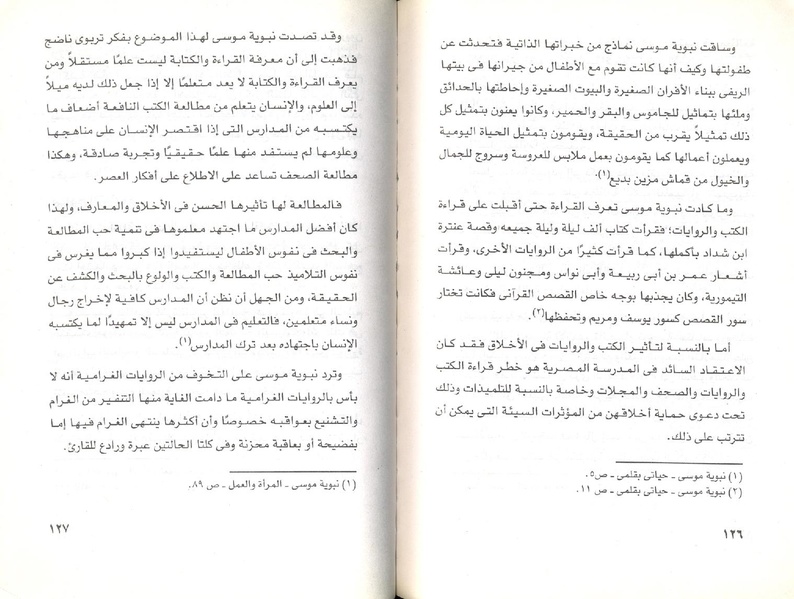 وساقت نبوية موسى نماذج من خبراتها الذاتية فتحدثت عن
طفولتها وكيف أنها كانت تقوم مع الأطفال من جيرانها فى بيتها
الريفى ببناء الأفران الصغيرة والبيوت الصغيرة وإحاطتها بالحدائق
وملئها بتماثيل للجاموس والبقر والحمير، وكانوا يعنون بتمثيل كل
ذلك تمثيلاً يقرب من الحقيقة، ويقومون بتمثيل الحياة اليومية
ويعملون أعمالها كما يقومون بعمل ملابس للعروسة وسروج للجمال
والخيول من قماش مزين بديع(١).
وما كادت نبوية موسى تعرف القراءة حتى أقبلت على قراءة
الكتب والروايات؛ فقرأت كتاب ألف ليلة وليلة جميعه وقصة عنترة
ابن شداد بأكملها، كما قرأت كثيرًا من الروايات الأخرى، وقرأت
أشعار عمر بن أبى ربيعة وأبى نواس ومجنون ليلى وعائشة
التيمورية، وكان يجذبها بوجه خاص القصص القرآنى فكانت تختار
سور القصص كسور يوسف ومريم وتحفظها(٢).
أما بالنسبة لتأثير الكتب والروايات فى الأخلاق فقد كان
الاعتقاد السائد فى المدرسة المصرية هو خطر قراءة الكتب
والروايات والصحف والمجلات وخاصة بالنسبة للتلميذات وذلك
تحت دعوى حماية أخلاقهن من المؤثرات السيئة التى يمكن أن
تترتب على ذلك.
(١) نبوية موسى ـ حياتى بقلمى ـ ص٥.
(٢) نبوية موسى ـ حياتى بقلمى ـ ص ١١.
١٢٦
وقد تصدت نبوية موسى لهذا الموضوع بفكر تربوى ناضج
فذهبت إلى أن معرفة القراءة والكتابة ليست علمًا مستقلاً ومن
يعرف القراءة والكتابة لا يعد متعلمًا إلا إذا جعل ذلك لديه ميلاً
إلى العلوم، والإنسان يتعلم من مطالعة الكتب النافعة أضعاف ما
يكتسبه من المدارس التى إذا اقتصر الإنسان على مناهجها
وعلومها لم يستفد منها علمًا حقيقيًا وتجربة صادقة، وهكذا
مطالعة الصحف تساعد على الاطلاع على أفكار العصر.
فالمطالعة لها تأثيرها الحسن فى الأخلاق والمعارف، ولهذا
كان أفضل المدارس ما اجتهد معلموها فى تنمية حب المطالعة
والبحث فى نفوس الأطفال ليستفيدوا إذا كبروا مما يغرس فى
نفوس التلاميذ حب المطالعة والكتب والولوع بالبحث والكشف عن
الحقيقة، ومن الجهل أن نظن أن المدارس كافية لإخراج رجال
ونساء متعلمين، فالتعليم فى المدارس ليس إلا تمهيدًا لما يكتسبه
الإنسان باجتهاده بعد ترك المدارس(١).
وترد نبوية موسى على التخوف من الروايات الغرامية أنه لا
بأس بالروايات الغرامية ما دامت الغاية منها التنفير من الغرام
والتشنيع بعواقبه خصوصًا وأن أكثرها ينتهى الغرام فيها إما
بفضيحة أو بعاقبة محزنة وفى كلتا الحالتين عبرة ورادع للقارئ.
(١) نبوية موسى ـ المرأة والعمل ـ ص ٨٩.
١٢٧